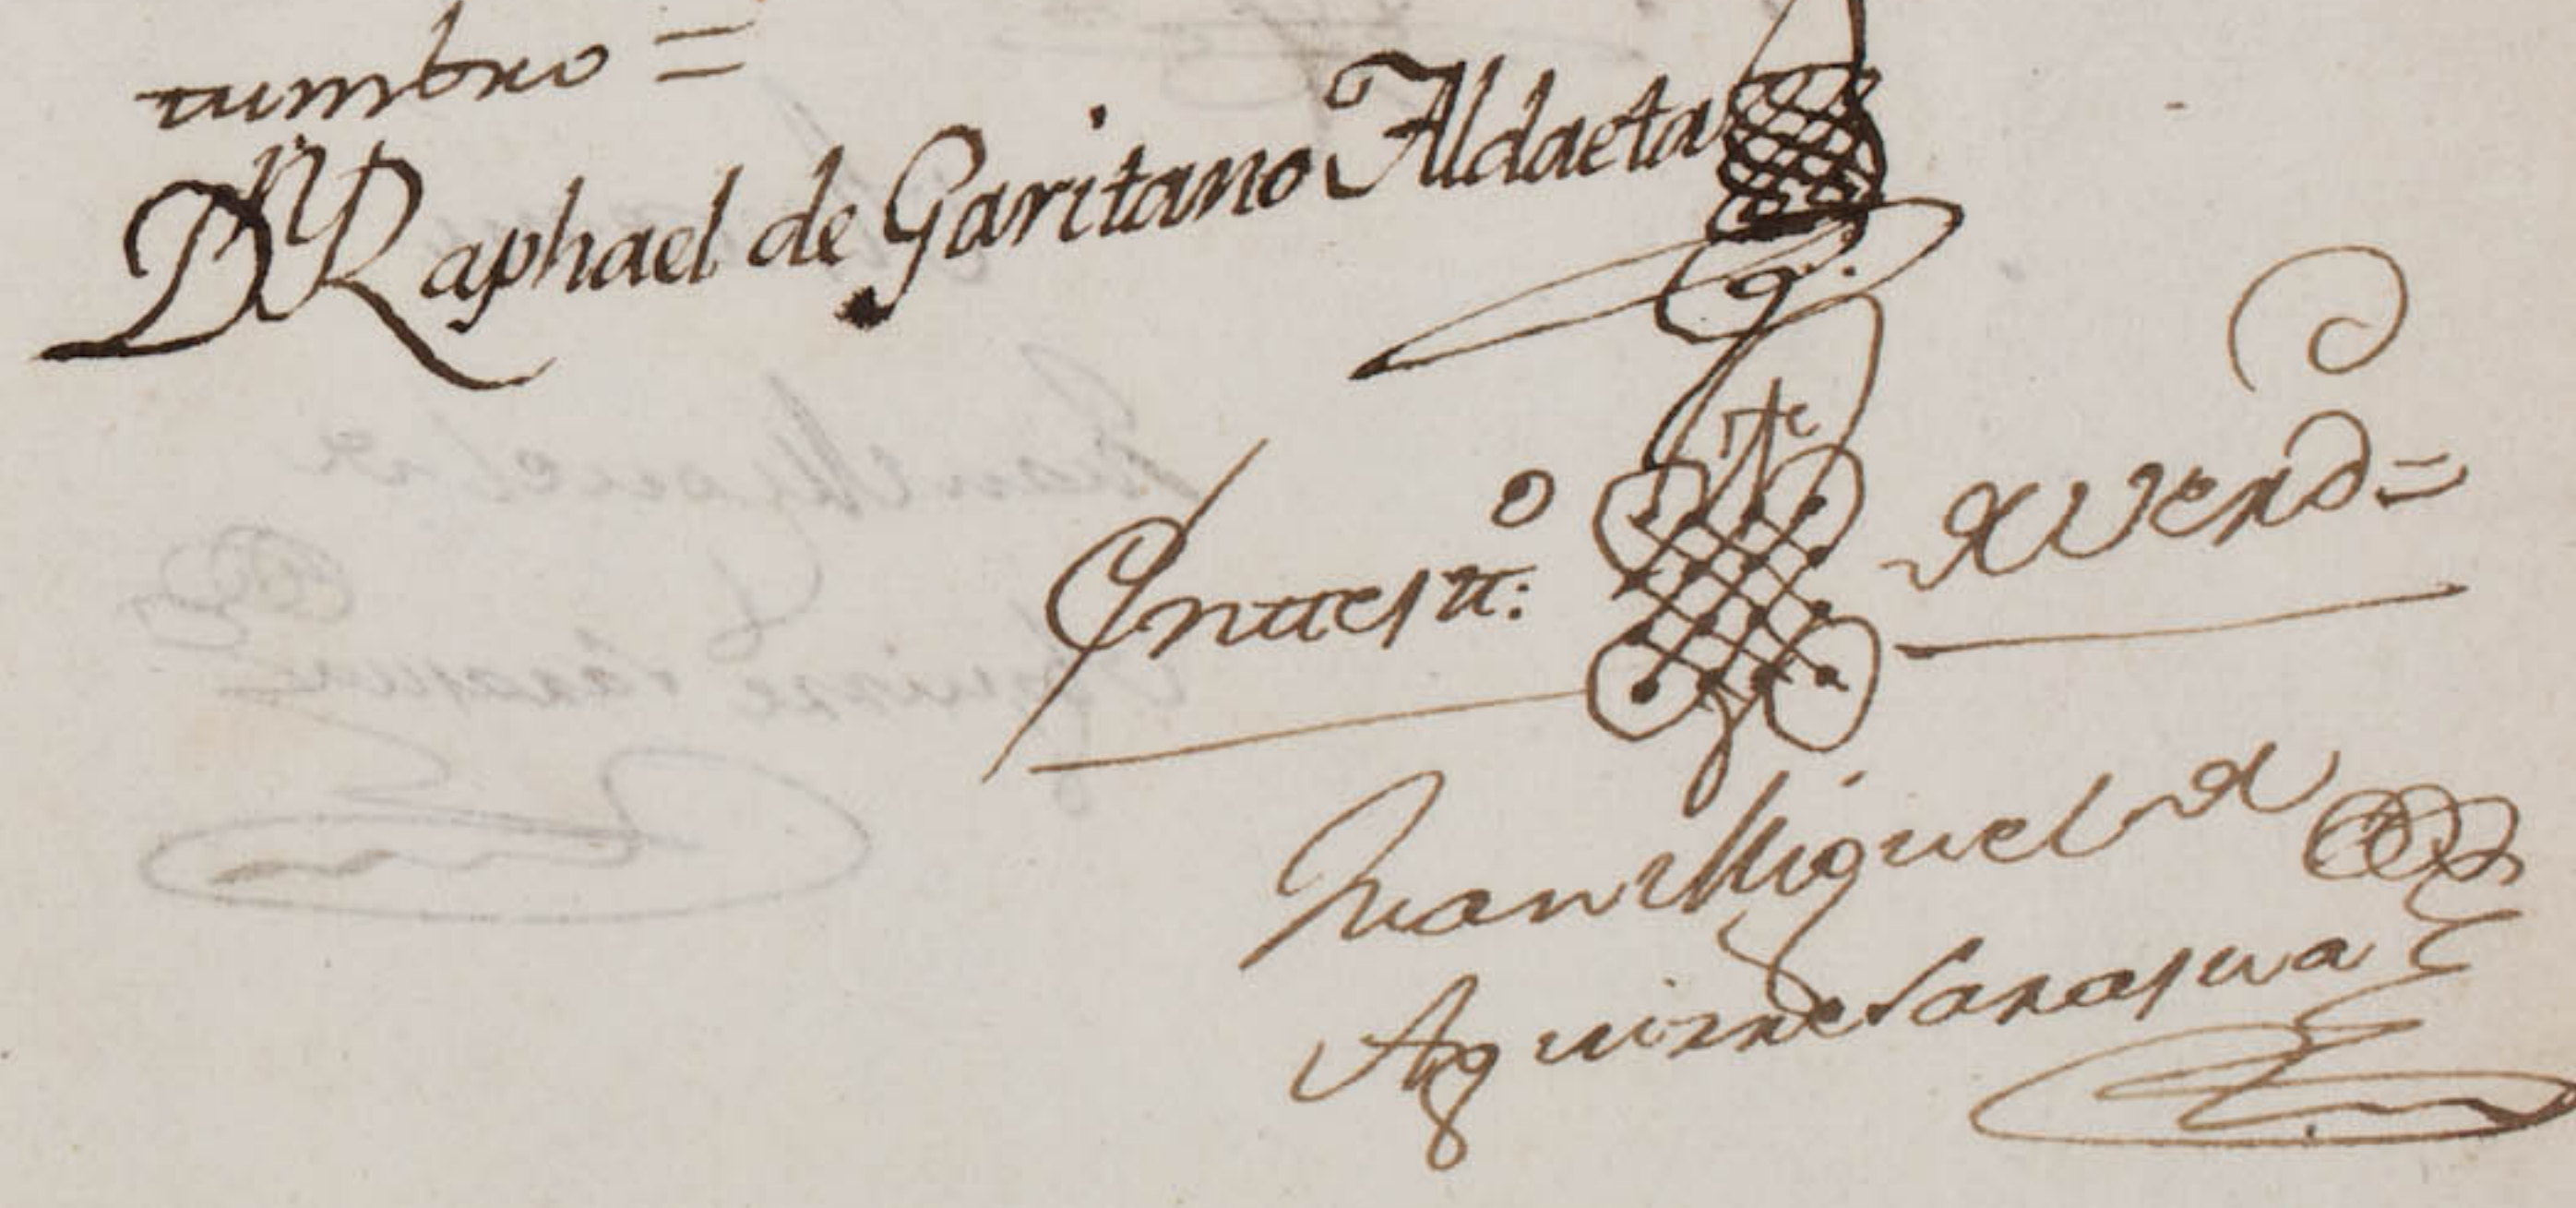 tumbro =
Dn Raphael de Garitano Aldaeta
En testt:o de Verd =
Juan Miguel de
Aguirre Sarasua